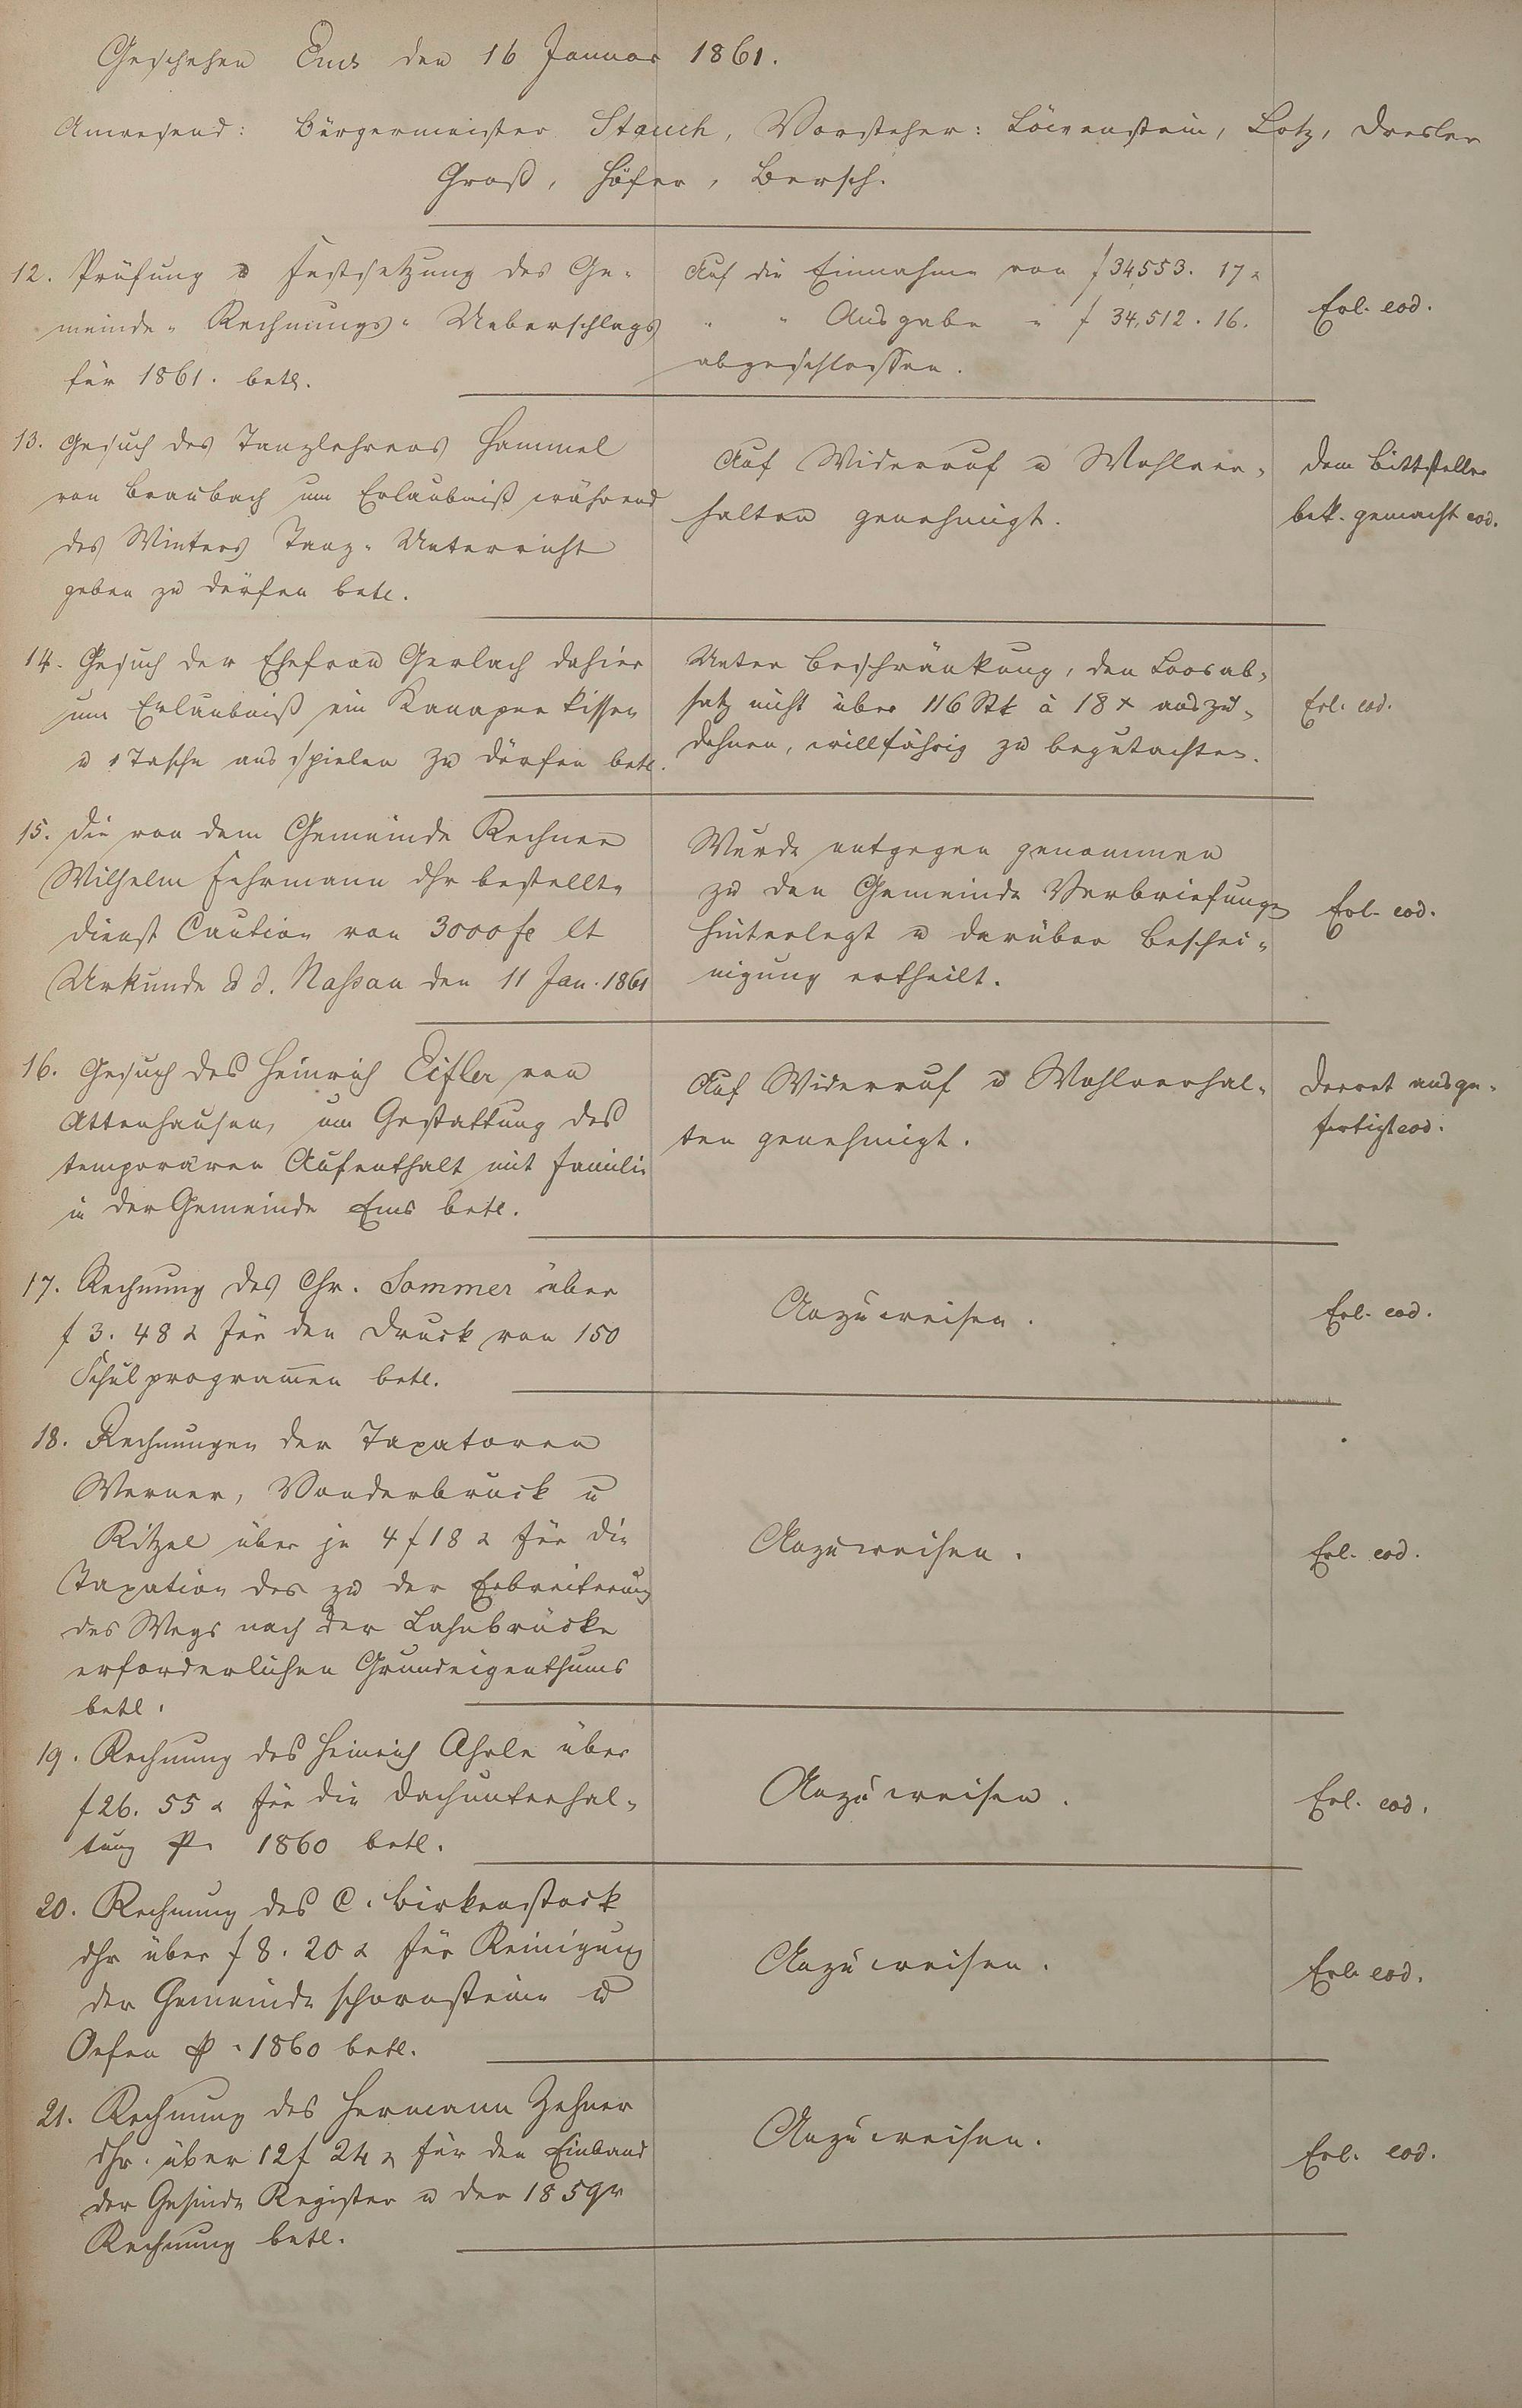 Geschehen Ems den 16 Januar 1861.
Anwesend: Bürgermeister Stauch, Vorsteher: Löwenstein, Lotz, Dresler
Groß, Höfer, Bersch.
12. Prüfung u Festsetzung des Ge-
meinde-Rechnungs-Ueberschlags
für 1861. betr.
Auf die Einnahme von f 34,553. 17 x
" " Ausgabe " f 34,512. 16.
abgeschlossen.
Erl. eod.
13. Gesuch des Tanzlehrers Hammel
von Braubach um Erlaubniß während
des Winters Tanz-Unterricht
geben zu dürfen betr.
Auf Widerruf u Wohlver-
halten genehmigt.
Dem Bittsteller
bek. gemacht eod.
14. Gesuch der Ehefrau Gerlach dahier
um Erlaubniß ein Kanapee Kissen
u 1 Tasche ausspielen zu dürfen betr.
Unter Beschränkung, den Loosab-
satz nicht über 116 Stk à 18 x auszu-
dehnen, willfährig zu begutachten.
Erl. eod.
15. Die von dem Gemeinde Rechner
Wilhelm Fuhrmann dhr bestellte
Dienst Caution von 3000 fl lt
Urkunde d d. Nassau den 11 Jan. 1861
Wurde entgegen genommen
zu den Gemeinde Verbriefungen
hinterlegt u darüber Beschei-
nigung ertheilt.
Erl. eod.
16. Gesuch des Heinrich Eifler von
Attenhausen, um Gestattung des
temporären Aufenthalt mit Familie
in der Gemeinde Ems betr.
Auf Widerruf u Wohlverhal-
ten genehmigt.
Decret ausge-
fertigt eod.
17. Rechnung des Chr. Sommer über
f 3. 48 x für den Druck von 150
Schulprogrammen betr.
Anzuweisen.
Erl. eod.
18. Rechnungen der Taxatoren
Werner, Vonderbruck u
Ritzel über je 4 f 18 x für die
Taxation des zu der Erbreiterung
des Wegs nach der Lahnbrücke
erforderlichen Grundeigenthums
betr.
Anzuweisen.
Erl. eod.
19. Rechnung des Heinrich Ahrle über
f 26. 55 x für die Dachunterhal-
tung p. 1860 betr.
Anzuweisen.
Erl. eod.
20. Rechnung des C. Birkenstock
dhr über f 8. 20 x für Reinigung
der Gemeinde schornsteine u
Oefen p. 1860 betr.
Anzuweisen.
Erl. eod.
21. Rechnung des Hermann Zehner
dhr. über 12 f 24 x für den Einband
der Gesinde Register u der 1859r
Rechnung betr.
Anzuweisen.
Erl. eod.